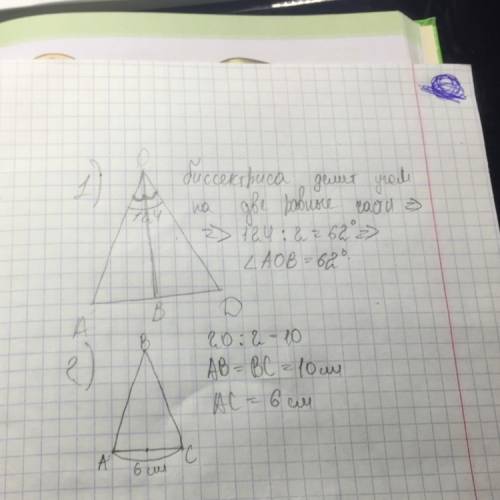 1)
O
124
A
B
D
биссектриса делит угол
на две равные части ⇒
⇒ 124 : 2 = 62° ⇒
∠AOB = 62°
2)
B
A
C
6 см
20 : 2 - 10
AB = BC = 10 см
AC = 6 см